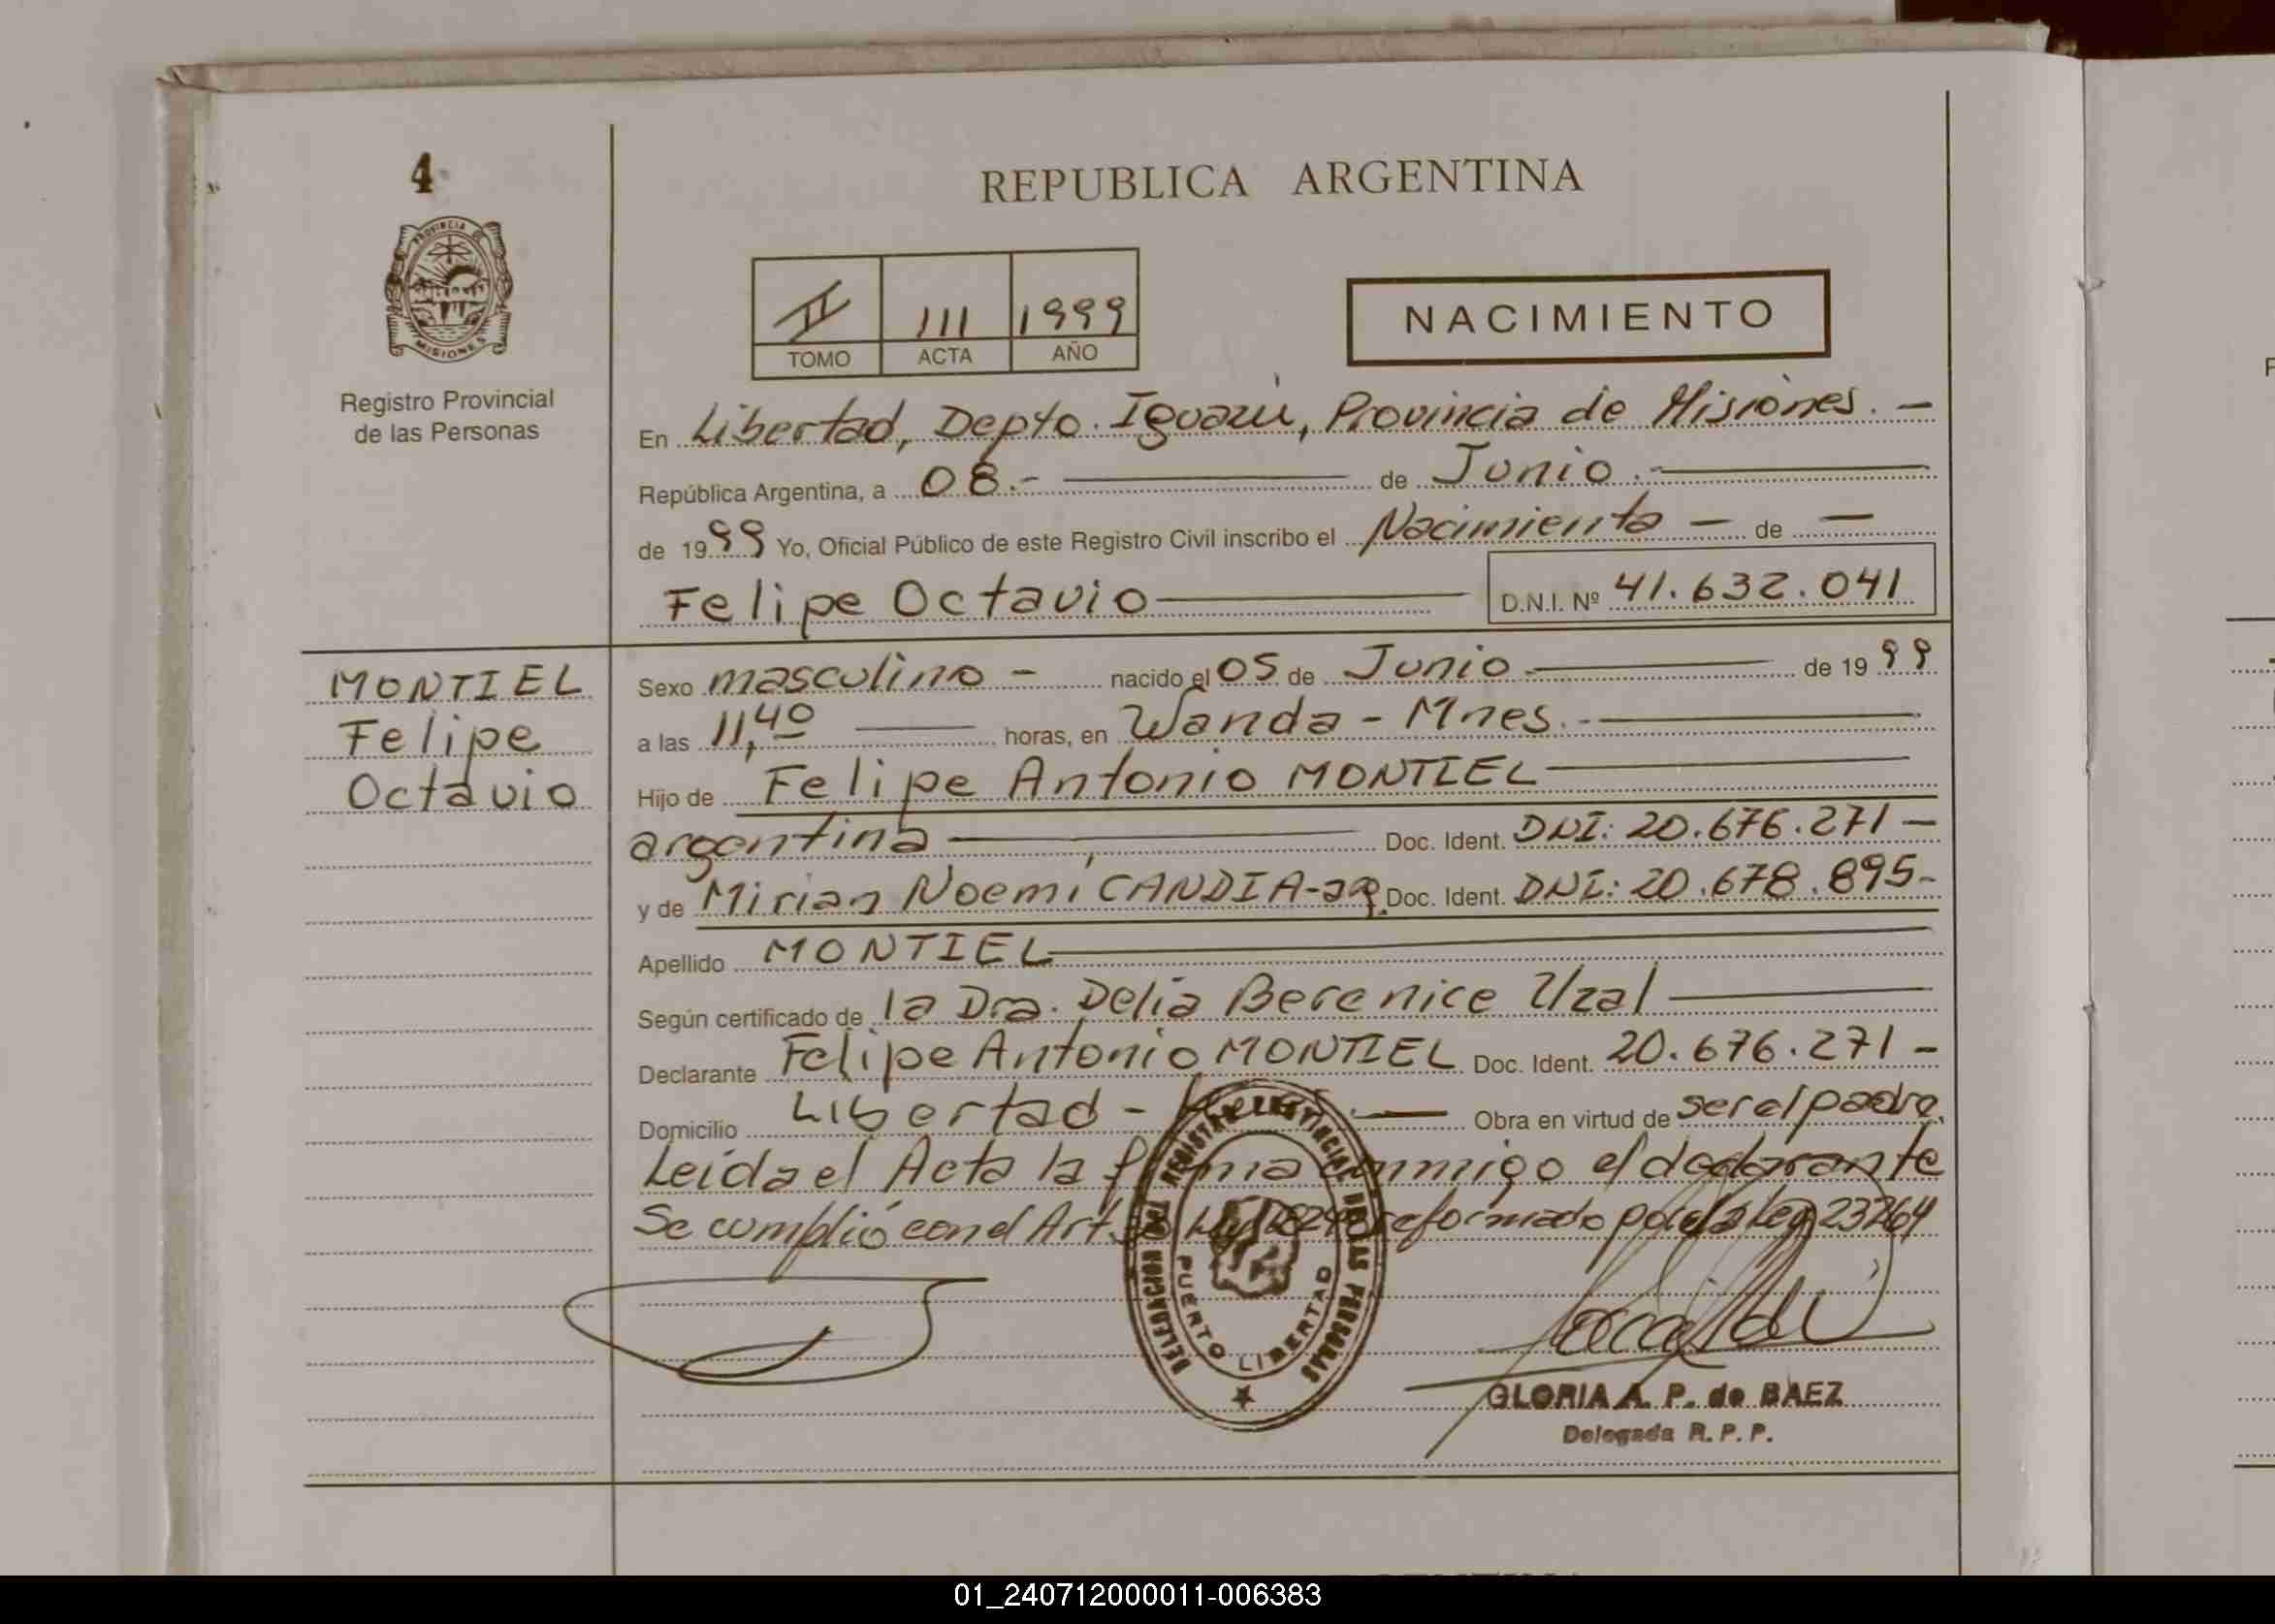 4
REPUBLICA ARGENTINA
PROVINCIA DE
MISIONES
Registro Provincial
de las Personas
II 111 1999
TOMO ACTA AÑO
NACIMIENTO
En Libertad, Depto. Iguazú, Provincia de Misiones. -
República Argentina, a 08.- de Junio.-
de 1999 Yo, Oficial Público de este Registro Civil inscribo el Nacimiento - de -
Felipe Octavio D.N.I. Nº 41.632.041
MONTIEL
Felipe
Octavio
Sexo masculino - nacido el 05 de Junio - de 1999
a las 11,40 horas, en Wanda - Mnes.-
Hijo de Felipe Antonio MONTIEL
argentina Doc. Ident. DNI: 20.676.271 -
y de Mirian Noemí CANDIA- Doc. Ident. DNI: 20.678.895-
Apellido MONTIEL
Según certificado de la Dra. Delia Berenice Uzal
Declarante Felipe Antonio MONTIEL Doc. Ident. 20.676.271 -
Domicilio Libertad - Obra en virtud de ser el padre.
Leída el Acta la firma conmigo el declarante
Se cumplió con el Art. reformado por la Ley 23264
DELEGACION DEL REGISTRO PROVINCIAL DE LAS PERSONAS
PUERTO LIBERTAD
GLORIA A. P. de BAEZ
Delegada R. P. P.
01_240712000011-006383